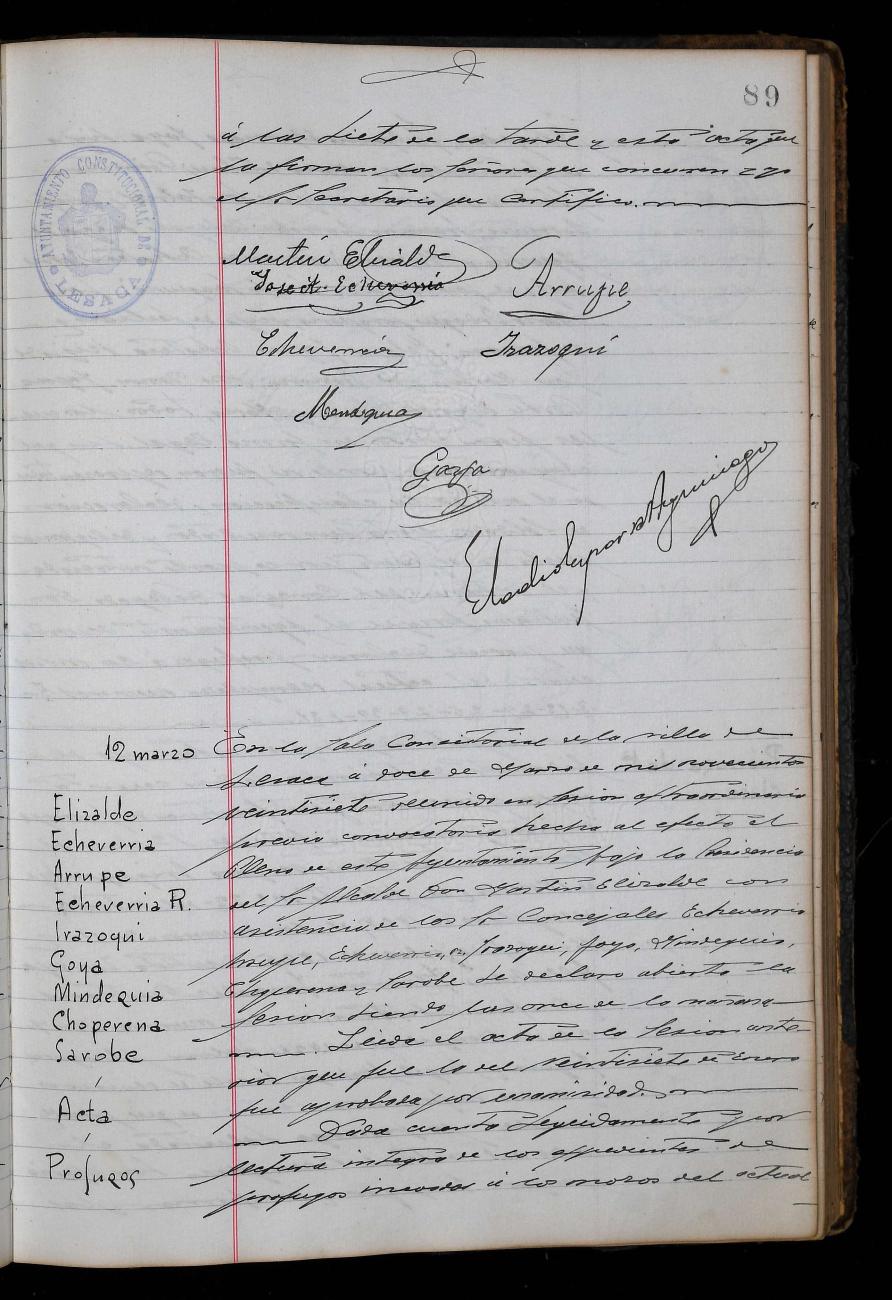 89
á las siete de la tarde y esta acta que
la firman los Señores que concurren y yo
el Sr Secretario que certifico.
AYUNTAMIENTO CONSTITUCIONAL DE
LESACA
Martin Elizalde
José Mª Echeverria
Arrupe
Echeverria
Irazoqui
Mendequia
Goya
Eladio Esparza Aguinaga
12 marzo
En la Sala Consistorial de la villa de
Lesaca á doce de Marzo de mil novecientos
veintisiete reunido en sesion extraordinaria
previa convocatoria hecha al efecto el
Pleno de este Ayuntamiento bajo la Presidencia
del Sr Alcalde Don Martin Elizalde con
asistencia de los Sr Concejales Echeverria
Arrupe, Echeverria R, Irazoqui, Goya, Mindeguia,
Choperena y Sarobe se declaro abierta la
sesion siendo las once de la mañana
Leida el acta de la sesion ante-
rior que fue la del veintisiete de Enero
fue aprobada por unanimidad.
Dada cuenta seguidamente y por
lectura integra de los expedientes de
profugos incoados á los mozos del actual
Elizalde
Echeverria
Arrupe
Echeverria R.
Irazoqui
Goya
Mindeguia
Choperena
Sarobe
Acta
Profugos